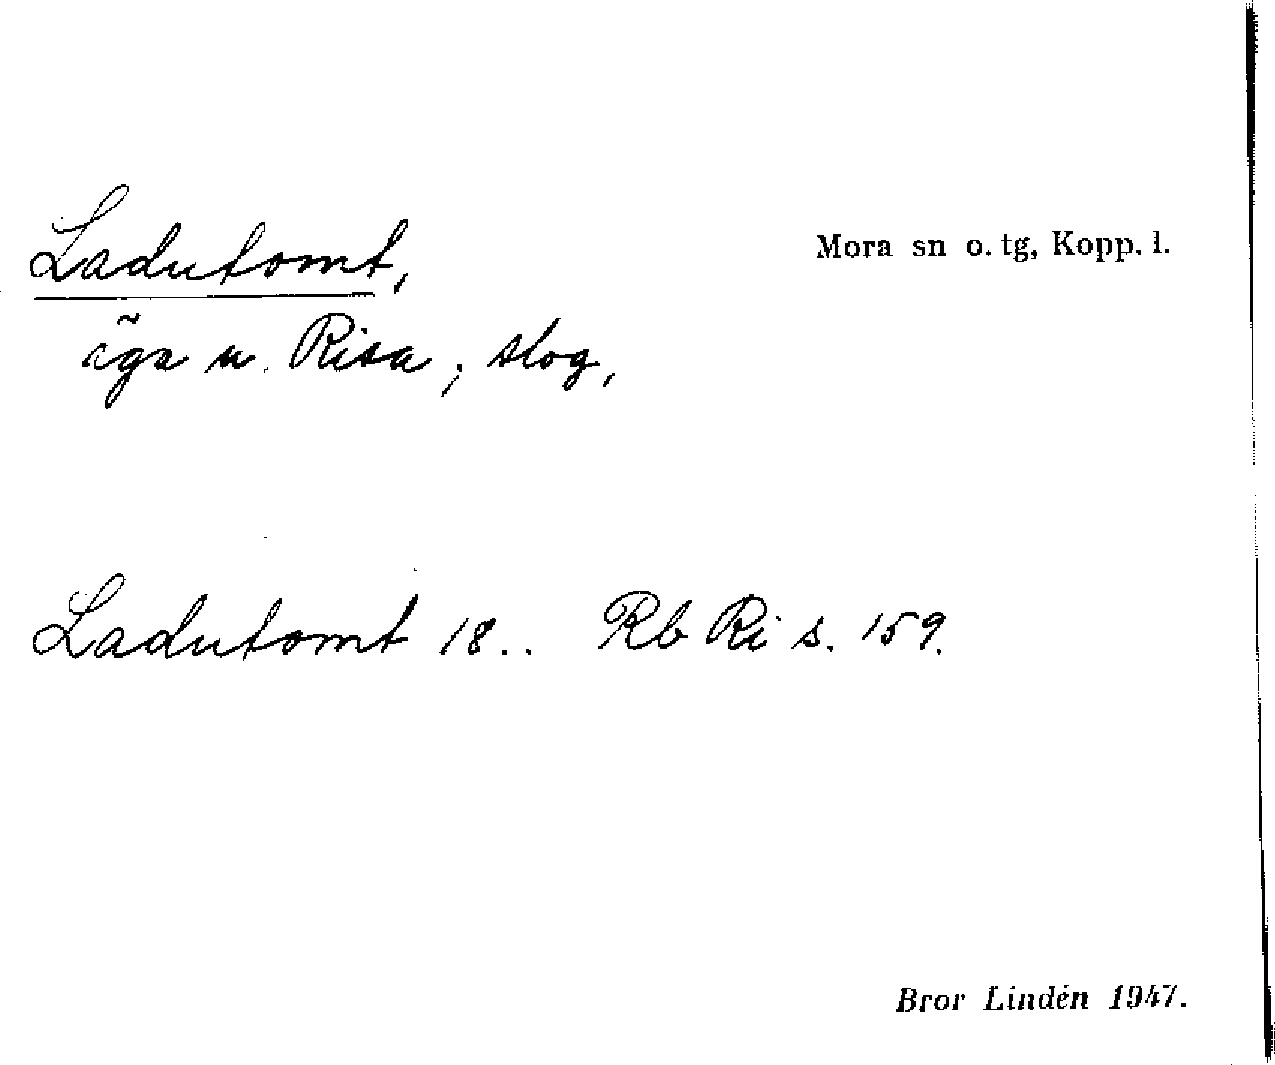 Ladutomt,
Mora sn o. tg, Kopp. l.
äga u. Risa, slog,
Ladutomt 18.. Rb Ri s. 159.
Bror Lindén 1947.